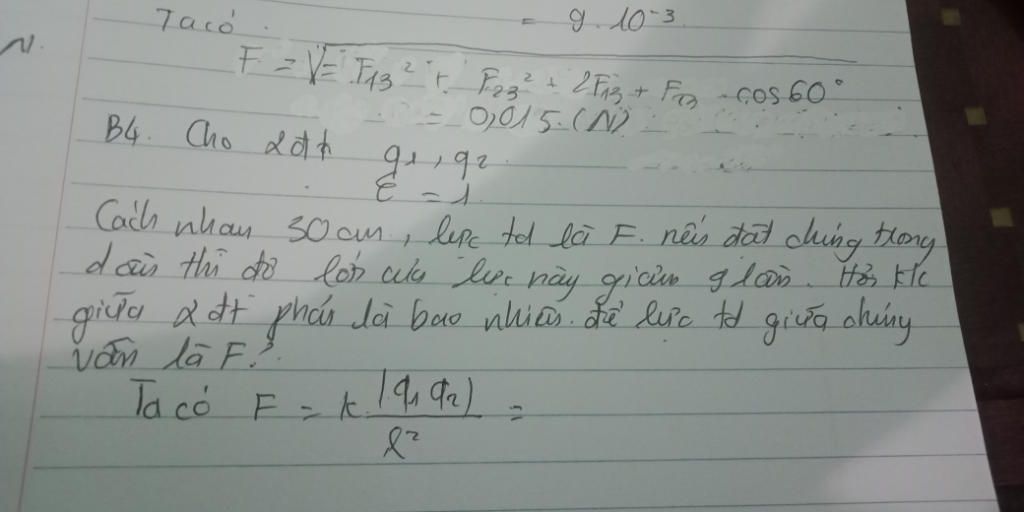 Ta có = 9.10⁻³
N.
F = √= F₁₃² + F₂₃² + 2F₁₃ + F₂₃ cos60°
= 0,015 (N)
B4. Cho 2đt q₁, q₂
ε = 1
Cách nhau 30cm, lực td là F. nếu đặt chúng trong
dầu thì độ lớn của lực này giảm 9 lần. Hỏi k/c
giữa 2 đt phải là bao nhiêu để lực td giữa chúng
vẫn là F?
Ta có F = k |q₁ q₂| / r² =